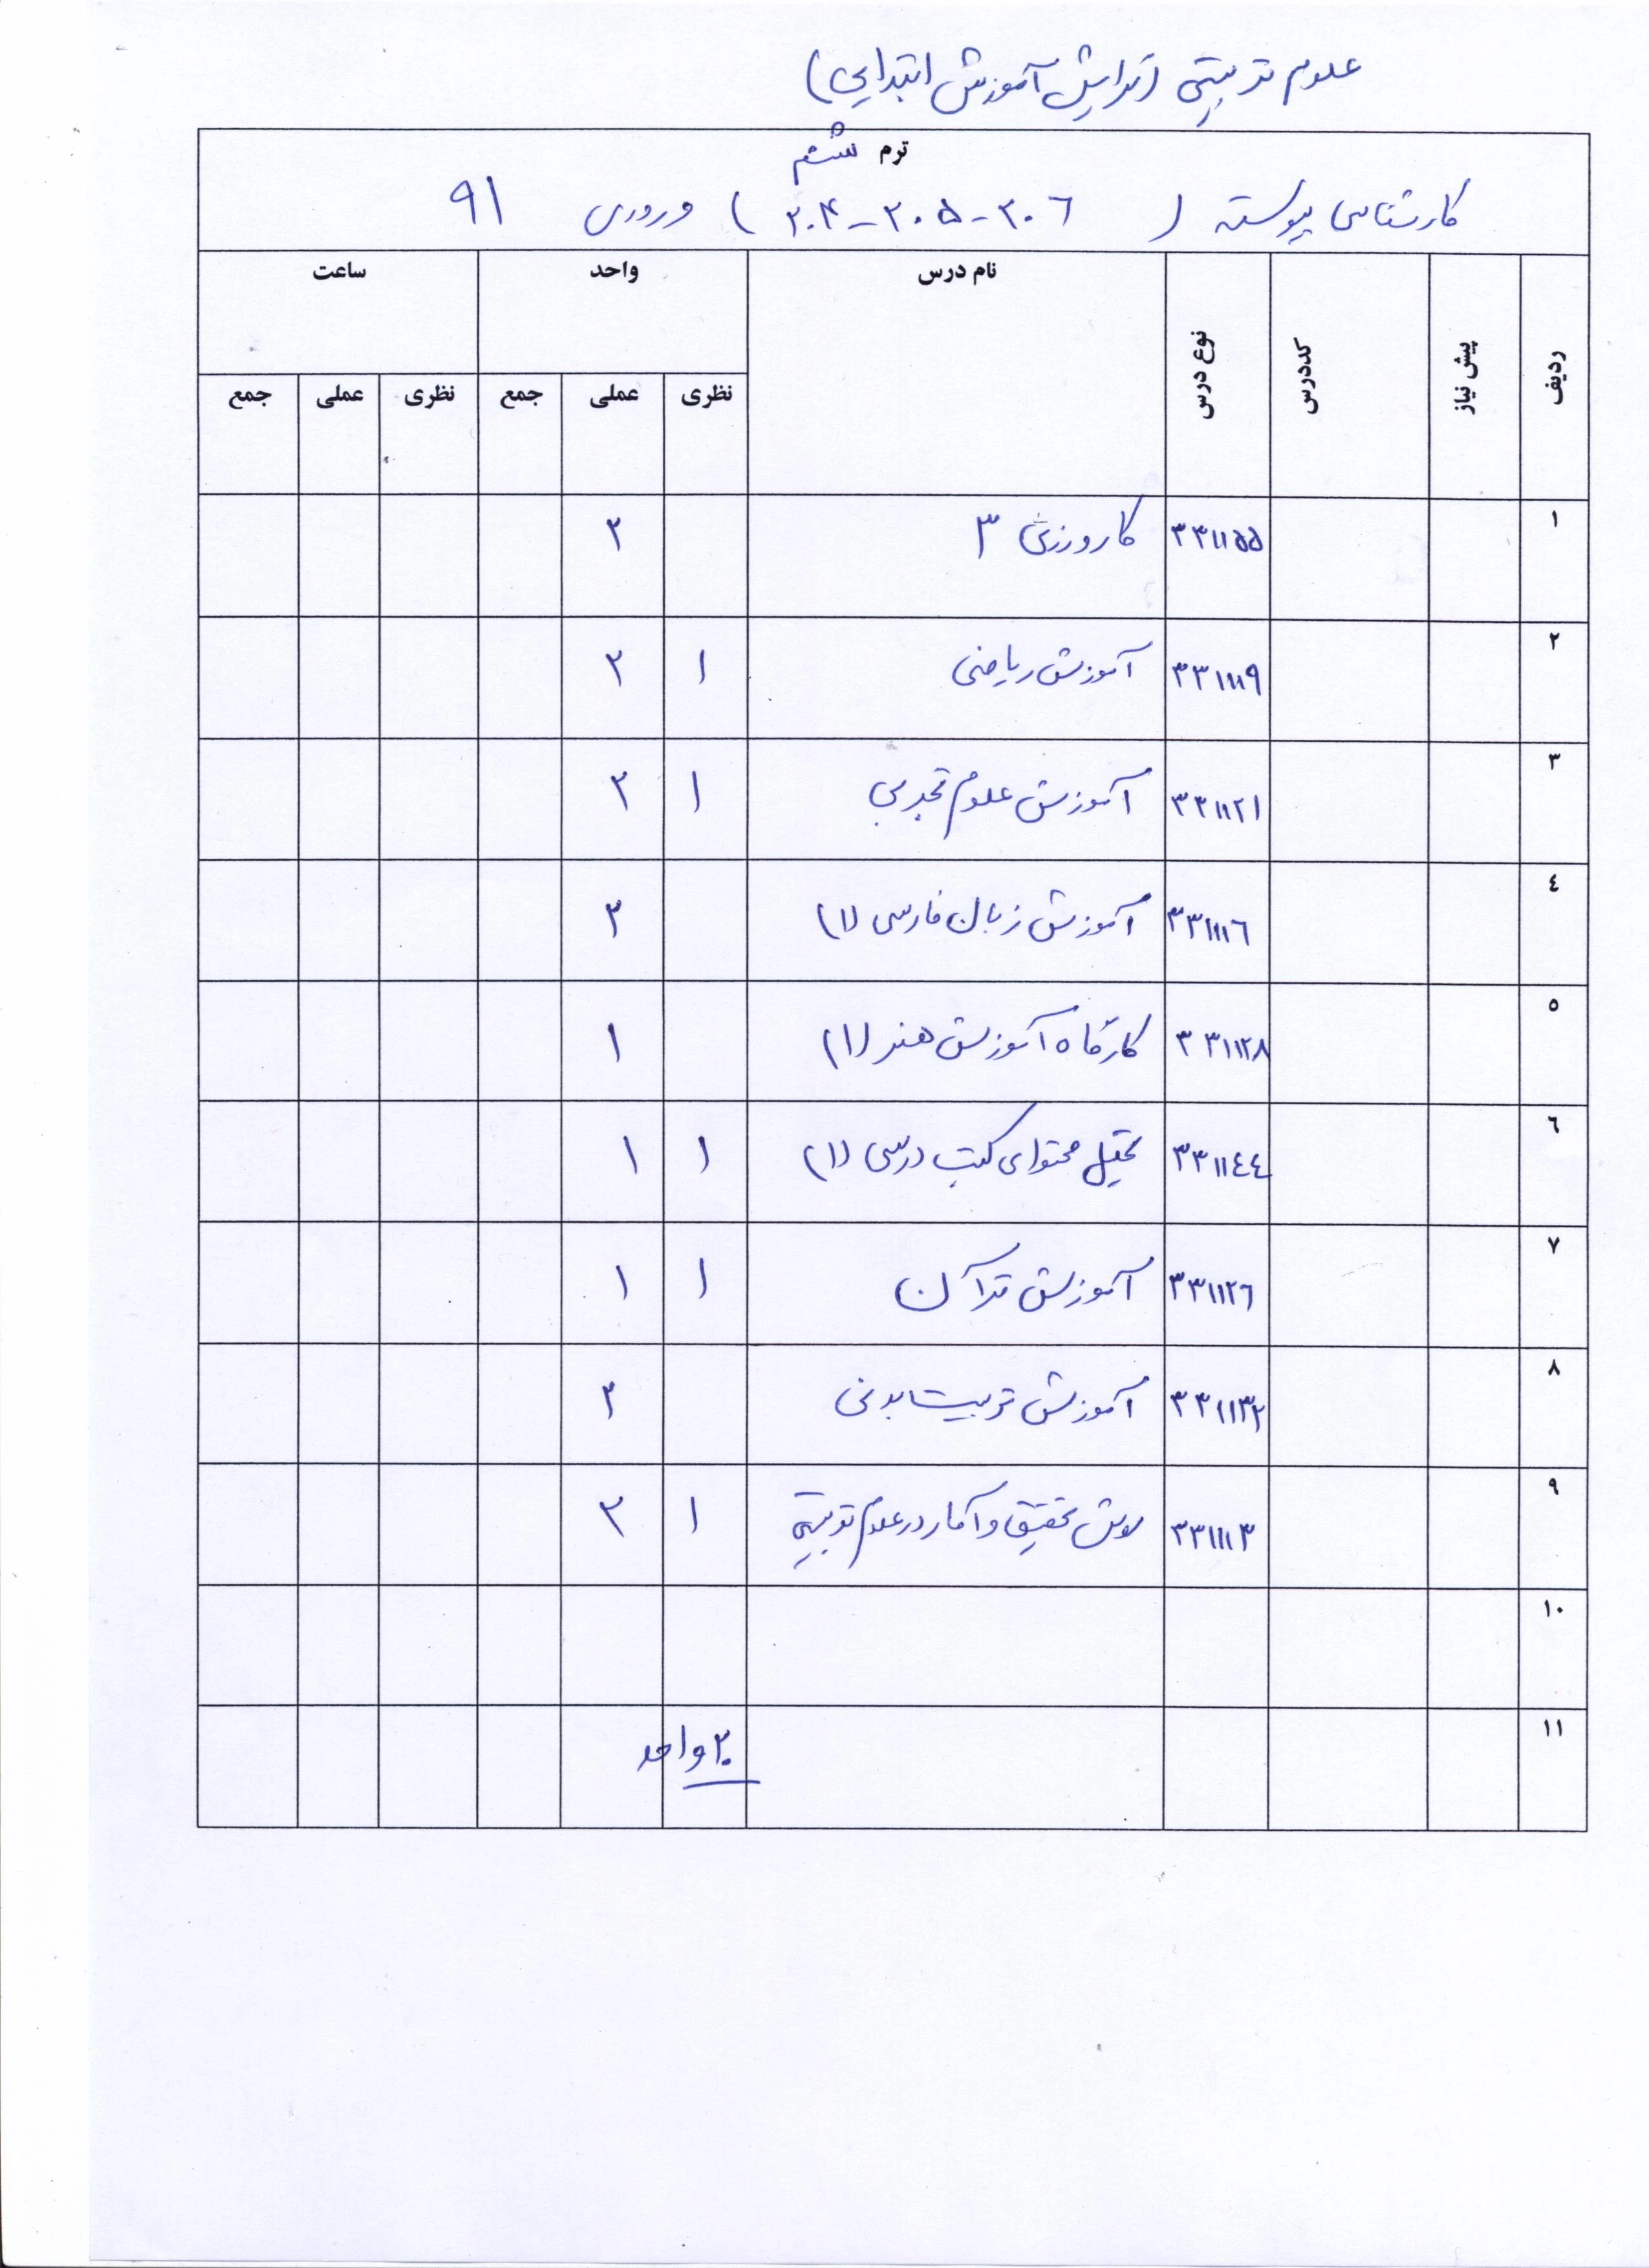 علوم تربیتی (گرایش آموزش ابتدایی)
ترم ششم
کارشناسی پیوسته ( ۲۰۶-۲۰۵-۲۰۴ ) ورودی ۹۱
ردیف پیش نیاز کددرس نوع درس نام درس واحد ساعت
نظری عملی جمع نظری عملی جمع
۱ ۳۳۱۱۵۵ کارورزی ۳ ۲
۲ ۳۳۱۱۱۹ آموزش ریاضی ۱ ۲
۳ ۳۳۱۱۲۱ آموزش علوم تجربی ۱ ۲
٤ ۳۳۱۱۱٦ آموزش زبان فارسی (۱) ۲
٥ ۳۳۱۱۲۸ کارگاه آموزش هنر (۱) ۱
٦ ۳۳۱۱٤٤ تحلیل محتوای کتب درسی (۱) ۱ ۱
۷ ۳۳۱۱۲٦ آموزش قرآن ۱ ۱
۸ ۳۳۱۱۳۲ آموزش تربیت بدنی ۲
۹ ۳۳۱۱۱۳ روش تحقیق و آمار در علوم تربیتی ۱ ۲
۱۰
۱۱ ۲۰ واحد